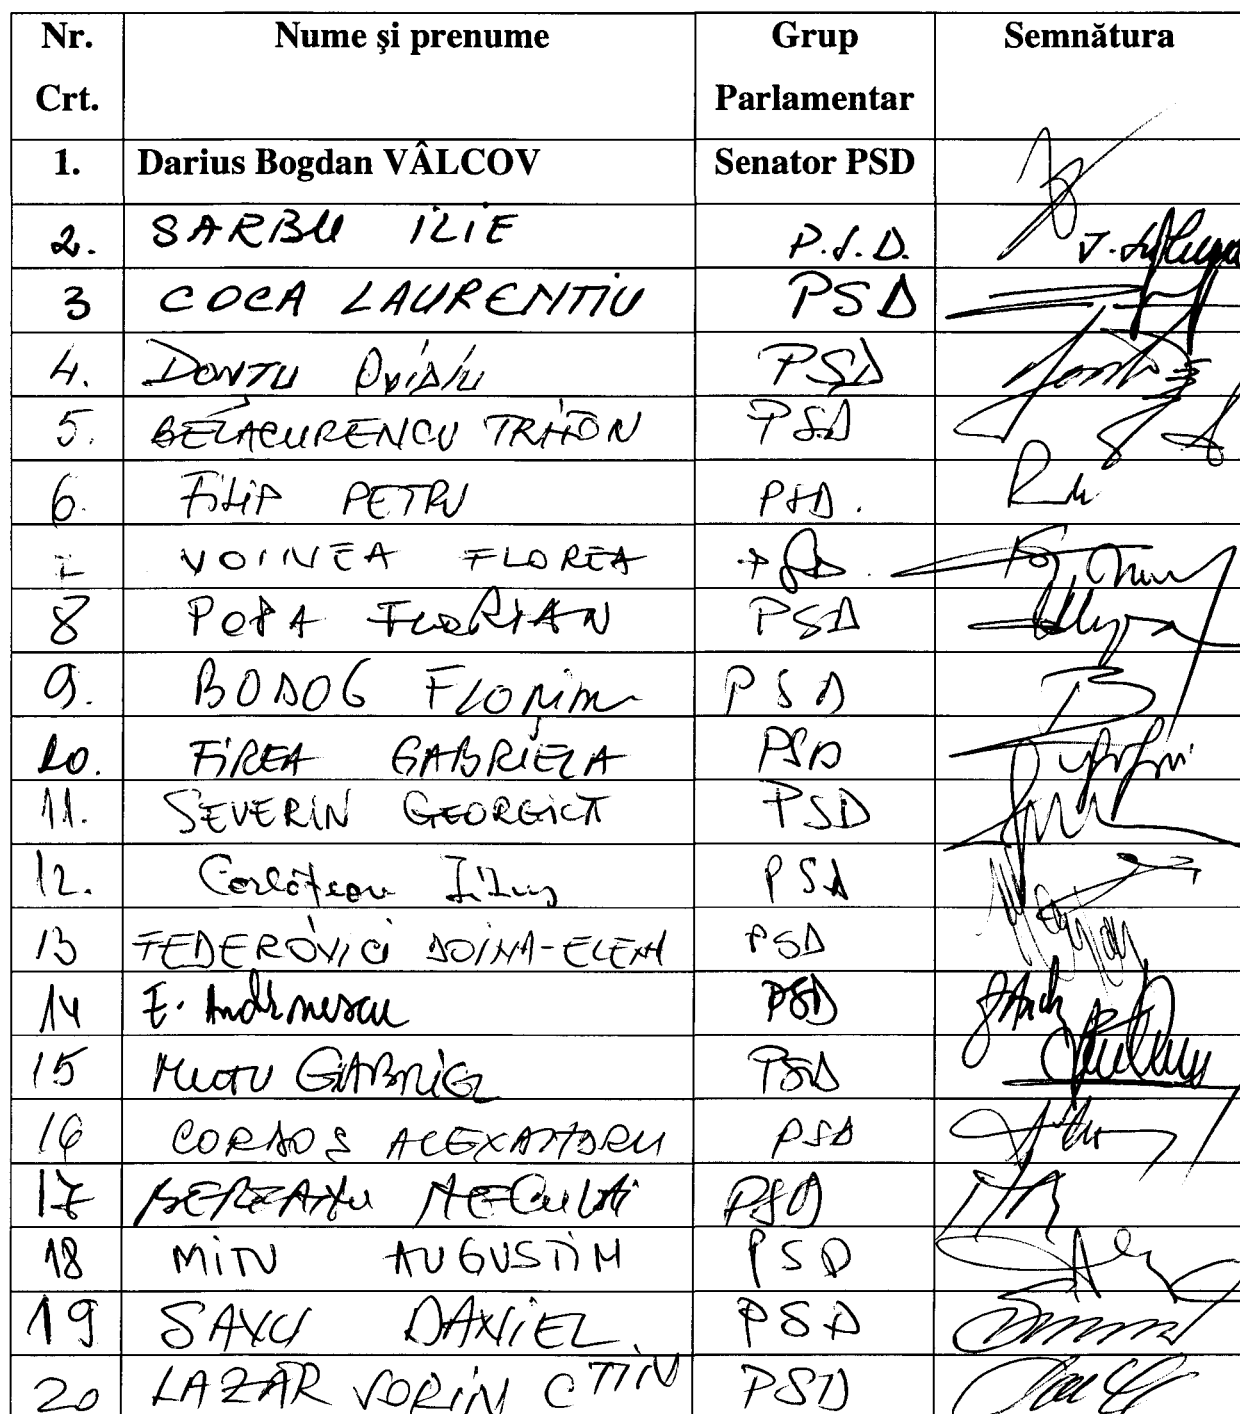 Nr. Crt. Nume şi prenume Grup Parlamentar Semnătura
1. Darius Bogdan VÂLCOV Senator PSD
2. SARBU ILIE P.S.D.
3 COCA LAURENTIU PSD
4. DONTU Ovidiu PSD
5. BELACURENCU TRIFON PSD
6. FILIP PETRU PSD.
7 VOINEA FLOREA PSD.
8 POPA FLORIAN PSD
9. BODOG FLORIN PSD
10. FIREA GABRIELA PSD
11. SEVERIN GEORGICĂ PSD
12. Corlățean Titus PSD
13 FEDEROVICI DOINA-ELENA PSD
14 E. Andronescu PSD
15 MUTU GABRIEL PSD
16 CORDOȘ ALEXANDRU PSD
17 NECULAI PSD
18 MITU AUGUSTIN PSD
19 SAVU DANIEL PSD
20 LAZAR SORIN CTIN PSD